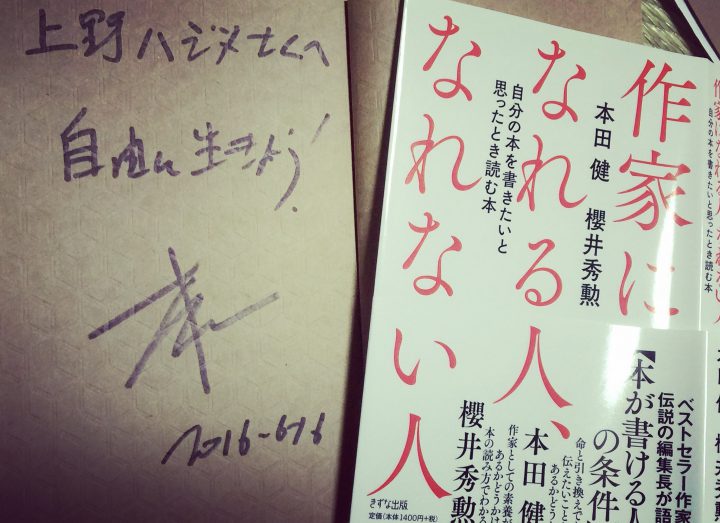 上野ハジメさんへ
自由に生きよう!
2016-6-16
作家に
なれる人、
なれない人
自分の本を書きたいと
思ったとき読む本
本田 健
櫻井秀勲
ベストセラー作家
伝説の編集長が語
【本が書ける人
の条件
命と引き換えて
伝えたいこと
あるかどうか
本田 健
作家としての素養が
あるかどうかは
本の読み方でわかる
櫻井秀勲
きずな出版
定価(本体1400円+税)
自分の本を書きたいと思ったとき読む本